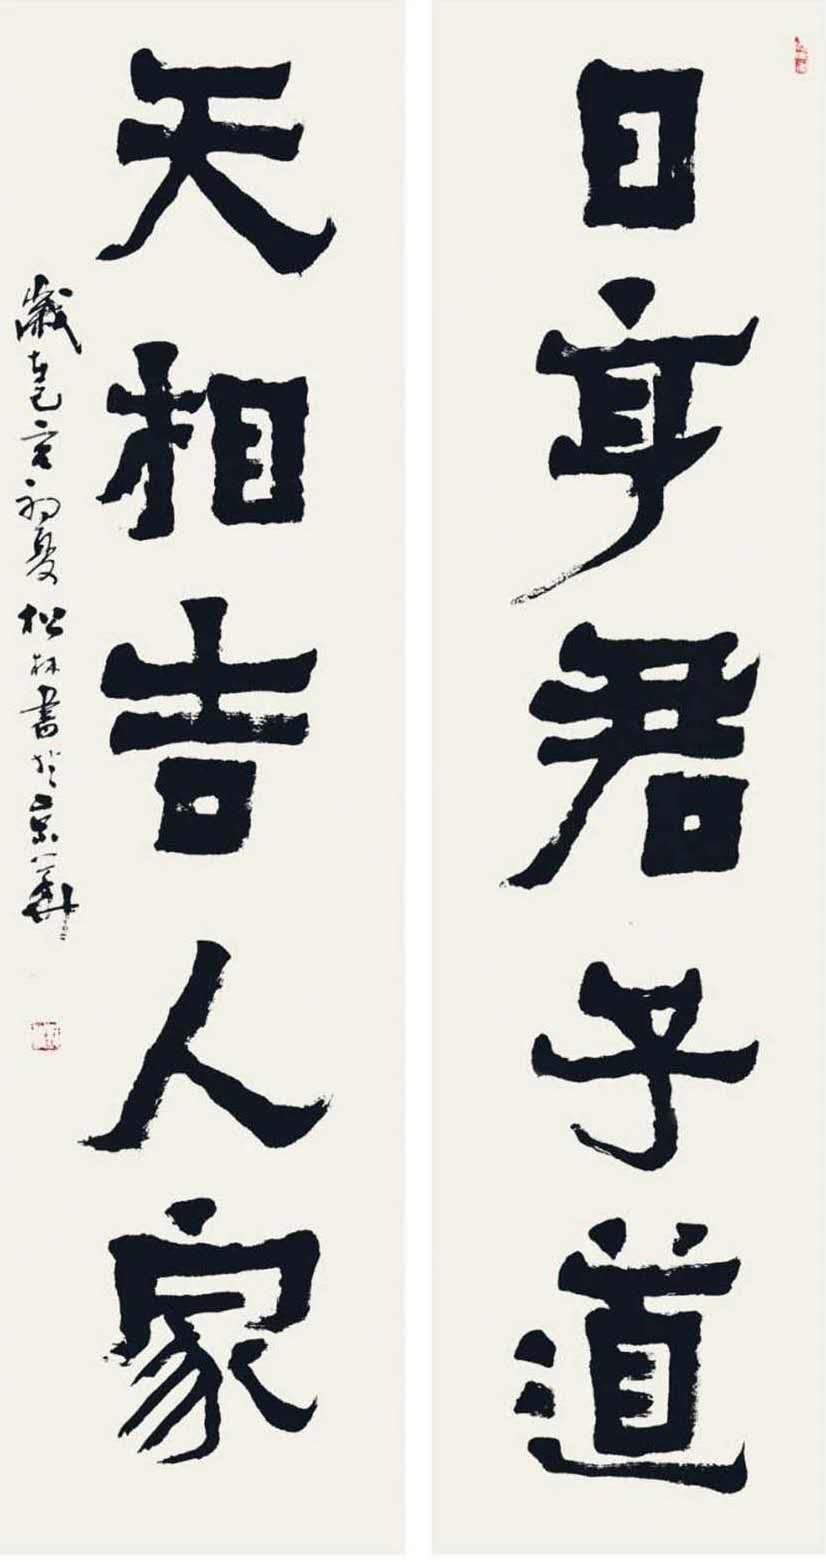 日享君子道
天相吉人家
歲在己亥初夏松林書於京華